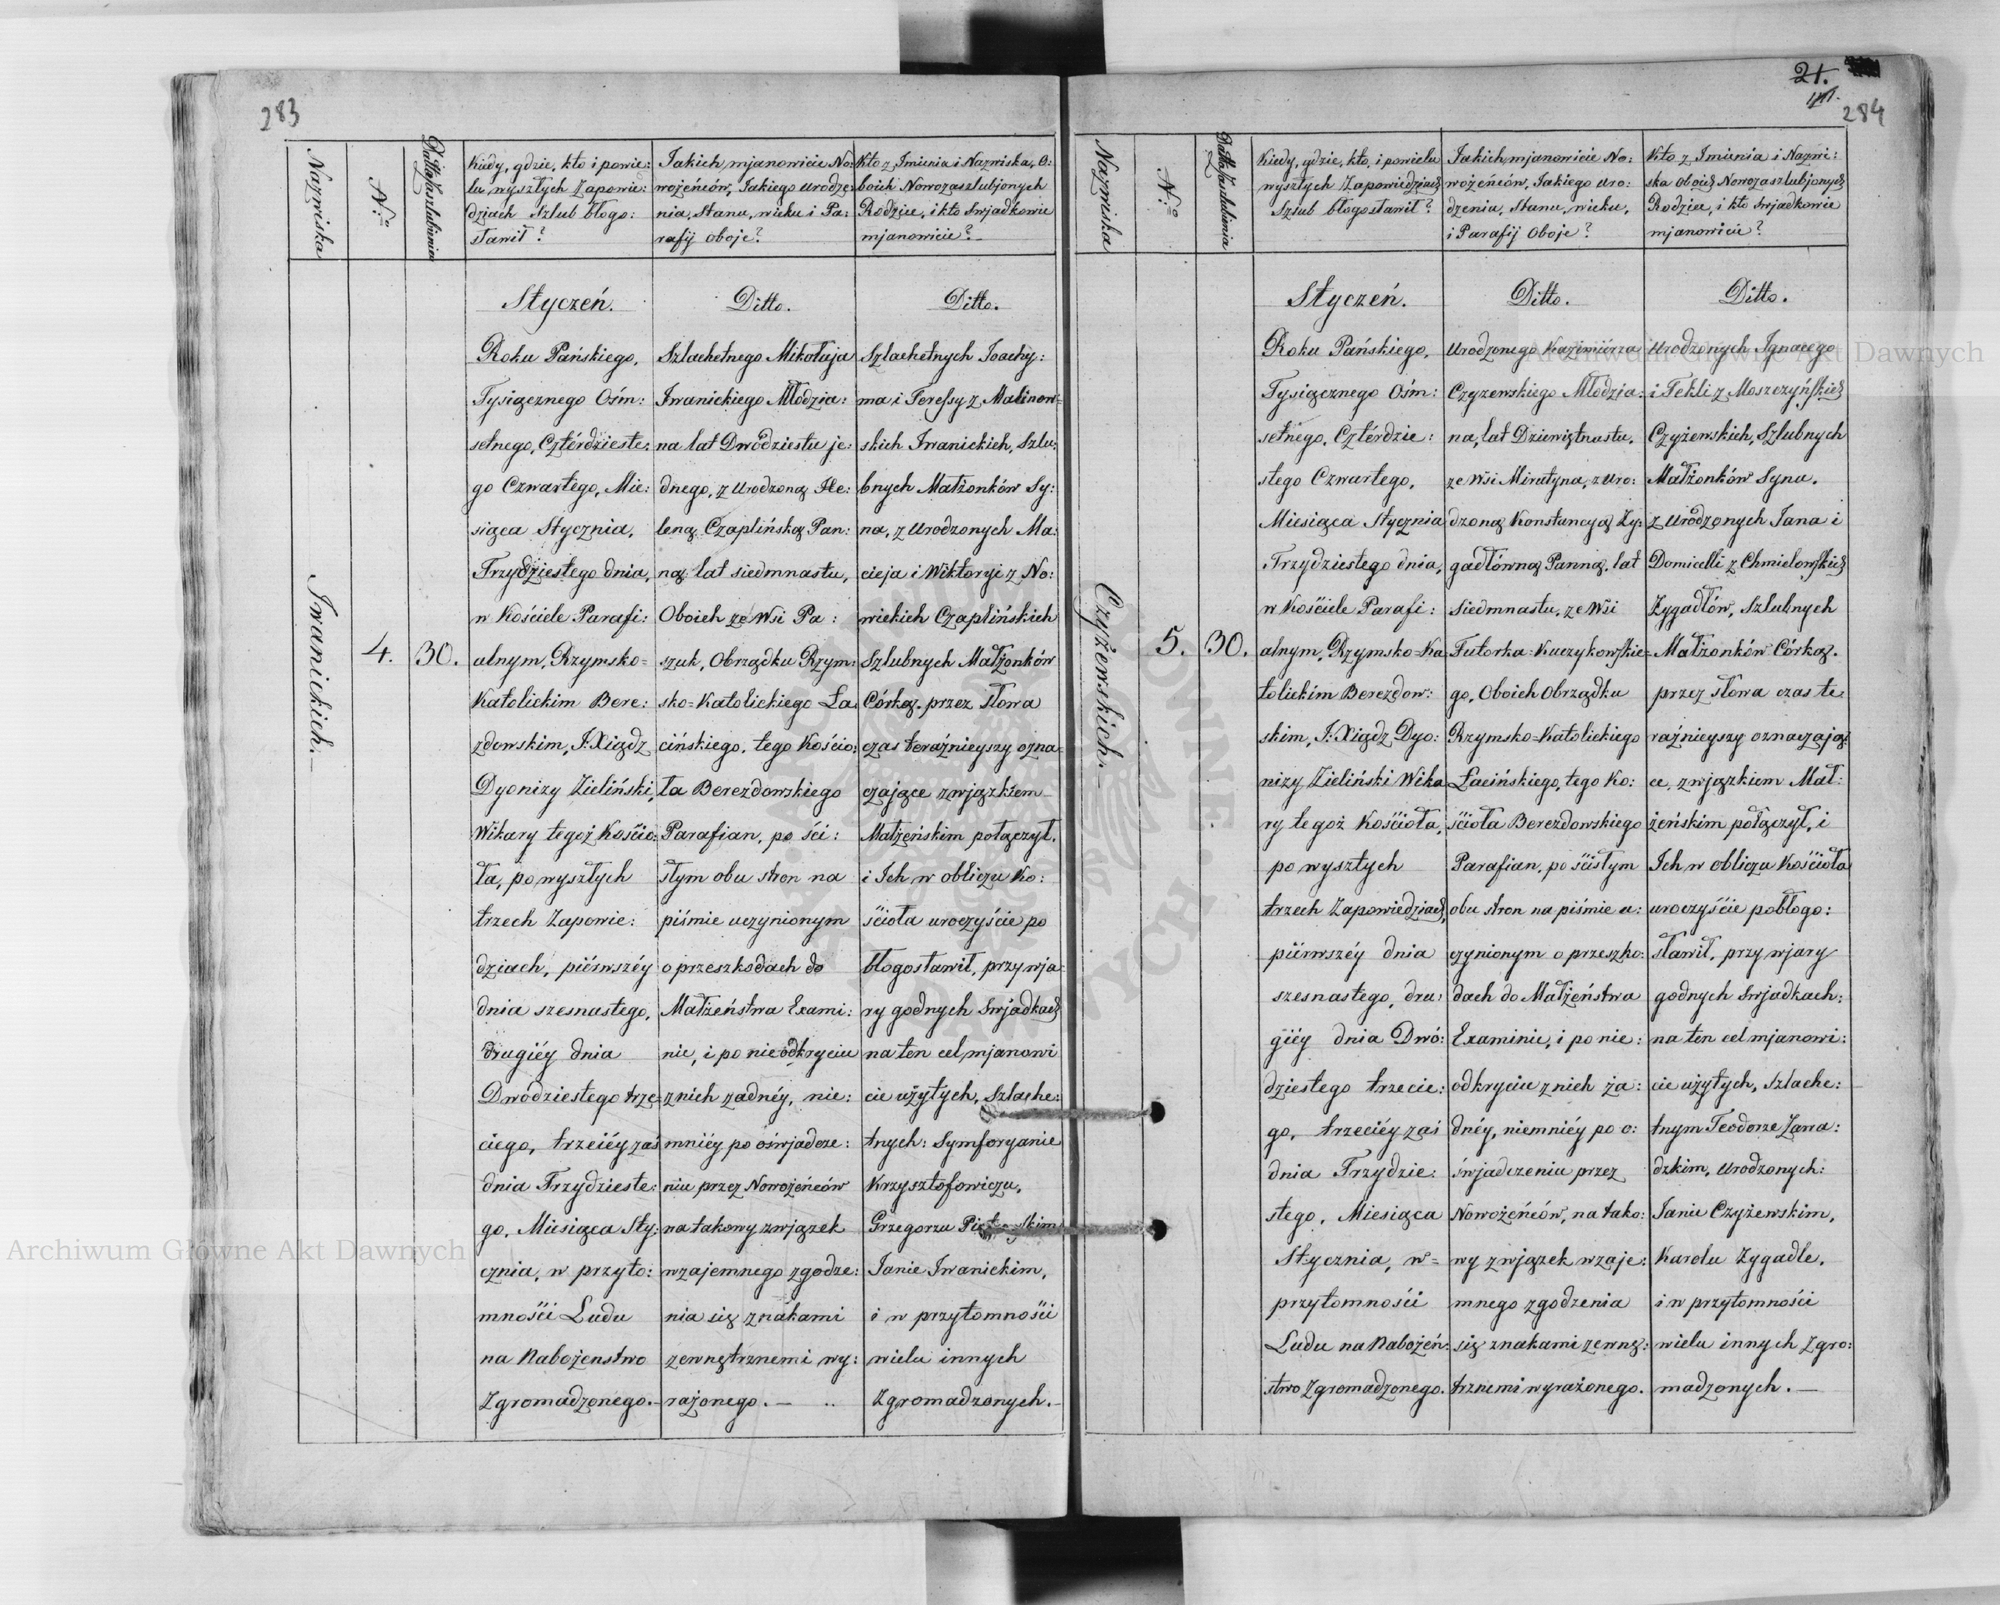 283
Nazwiska
N:ro
Datta Zaszlubienia
Kiedy, gdzie, kto i powie:
lu wyszłych Zapowie:
dziach Szlub błogo:
sławił?
Jakich mjanowicie No:
wożeńców, Jakiego urodze:
nia, Stanu, wieku i Pa:
rafij oboje?
Kto z Imienia i Nazwiska, O:
boich Nowozaszlubjonych
Rodzice, i kto Swjadkowie
mjanowicie?
Iwanickich.
4.
30.
Styczeń.
Roku Pańskiego,
Tysiącznego Ośm:
setnego, Cztérdzieste:
go Czwartego, Mie:
siąca Stycznia,
Trzydziestego dnia,
w Kościele Parafi:
alnym, Rzymsko=
Katolickim Bere:
zdowskim, J:Xiądz
Dyonizy Zieliński,
Wikary tegoż Kościo:
ła, po wyszłych
trzech Zapowie:
dziach, piérwszéy
dnia szesnastego,
drugiéy dnia
Dwódziestego trze:
ciego, trzeciéy zaś
dnia Trzydzieste:
go, Miesiąca Sty:
cznia, w przyto:
mności Ludu
na Nabożenstwo
Zgromadzonego.
Ditto.
Szlachetnego Mikołaja
Iwanickiego Młodzia:
na lat Dwódziestu je:
dnego, z Urodzoną He:
leną Czaplińską Pan:
ną lat siedmnastu,
Oboich ze Wsi Pa:
szuk, Obrządku Rzym:
sko=Katolickiego Ła
cińskiego, tego Kościo:
ła Berezdowskiego
Parafian, po ści:
słym obu stron na
piśmie uczynionym
o przeszkodach do
Małżeństwa Exami:
nie, i po nieodkryciu
z nich żadnéy, nie:
mniéy po oświadcze:
niu przez Nowożeńców
na takowy zwjązek
wzajemnego zgodze:
nia się znakami
zewnętrznemi wy:
rażonego.
Ditto.
Szlachetnych Joachy:
ma i Teressy z Malinow=
skich Iwanickich, Szlu:
bnych Małżonków Sy:
na, z Urodzonych Ma:
cieja i Wiktoryi z No:
wickich Czaplińskich
Szlubnych Małżonków
Córką, przez słowa
czas teraźnieyszy ozna=
czające zwjązkiem
Małżeńskim połączył,
i Ich w obliczu Ko:
ścioła uroczyście po
błogosławił, przy wja:
ry godnych Swjadkach
na ten cel mjanowi
cie użytych, Szlache:
tnych: Symforyanie
Krzysztofowiczu,
Grzegorzu
Janie Iwanickim,
i w przytomności
wielu innych
Zgromadzonych.
21.
284
Nazwiska
N:ro
Datta Zaszlubienia
Kiedy, gdzie, kto, i powielu
wyszłych Zapowiedziach
Szlub błogosławił?
Jakich mjanowicie No:
wożeńców, Jakiego uro:
dzenia, Stanu, wieku,
i Parafij Oboje?
Kto z Imienia i Nazwi:
ska Oboich Nowozaszlubjonych
Rodzice, i kto Swjadkowie
mjanowicie?
Czyżewskich.
5.
30.
Styczeń.
Roku Pańskiego,
Tysiącznego Ośm:
setnego, Cztérdzie:
stego Czwartego,
Miesiąca Stycznia
Trzydziestego dnia,
w Kościele Parafi:
alnym, Rzymsko=Ka
tolickim Berezdow:
skim, J:Xiądz Dyo:
nizy Zieliński Wika
ry tegoż Kościoła,
po wyszłych
trzech Zapowiedziach,
piérwszéy dnia
szesnastego, dru:
giéy dnia Dwó:
dziestego trzecie:
go, trzeciéy zaś
dnia Trzydzie:
stego, Miesiąca
Stycznia, w=
przytomności
Ludu na Nabożeń:
stwo Zgromadzonego.
Ditto.
Urodzonego Kazimiérza
Czyzewskiego Młodzia:
na, lat Dziewiętnastu,
ze Wsi Miratyna, z Uro:
dzoną Konstancyą Zy:
gadłówną Panną, lat
Siedmnastu, ze Wsi
Futorka Kuczykowskie=
go, Oboich Obrządku
Rzymsko=Katolickiego
Łacińskiego, tego Ko:
ścioła Berezdowskiego
Parafian, po ścisłym
obu stron na piśmie u:
czynionym o przeszko:
dach do Małżeństwa
Examinie, i po nie:
odkryciu z nich ża:
dnéy, niemniéy po o:
świadczeniu przez
Nowożeńców, na tako:
wy zwjązek wzaje:
mnego zgodzenia
się znakami zewnę:
trznemi wyrażonego.
Ditto.
Urodzonych Ignacego
i Tekli z Moszczyńskich
Czyżewskich, Szlubnych
Małżonków Syna,
z Urodzonych Jana i
Domicelli z Chmielowskich
Zygadłów, Szlubnych
Małżonków Córką,
przez słowa czas te
raźnieyszy oznaczają
ce, zwjązkiem Mał:
żeńskim połączył, i
Ich w obliczu Kościoła
uroczyście pobłogo:
sławił, przy wjary
godnych Swjadkach:
na ten cel mjanowi:
cie użytych, Szlache:
tnym Teodorze Zawa:
dzkim, Urodzonych:
Janie Czyżewskim,
Karolu Zygadle,
i w przytomności
wielu innych Zgro:
madzonych.
Archiwum Główne Akt Dawnych
Archiwum Główne Akt Dawnych